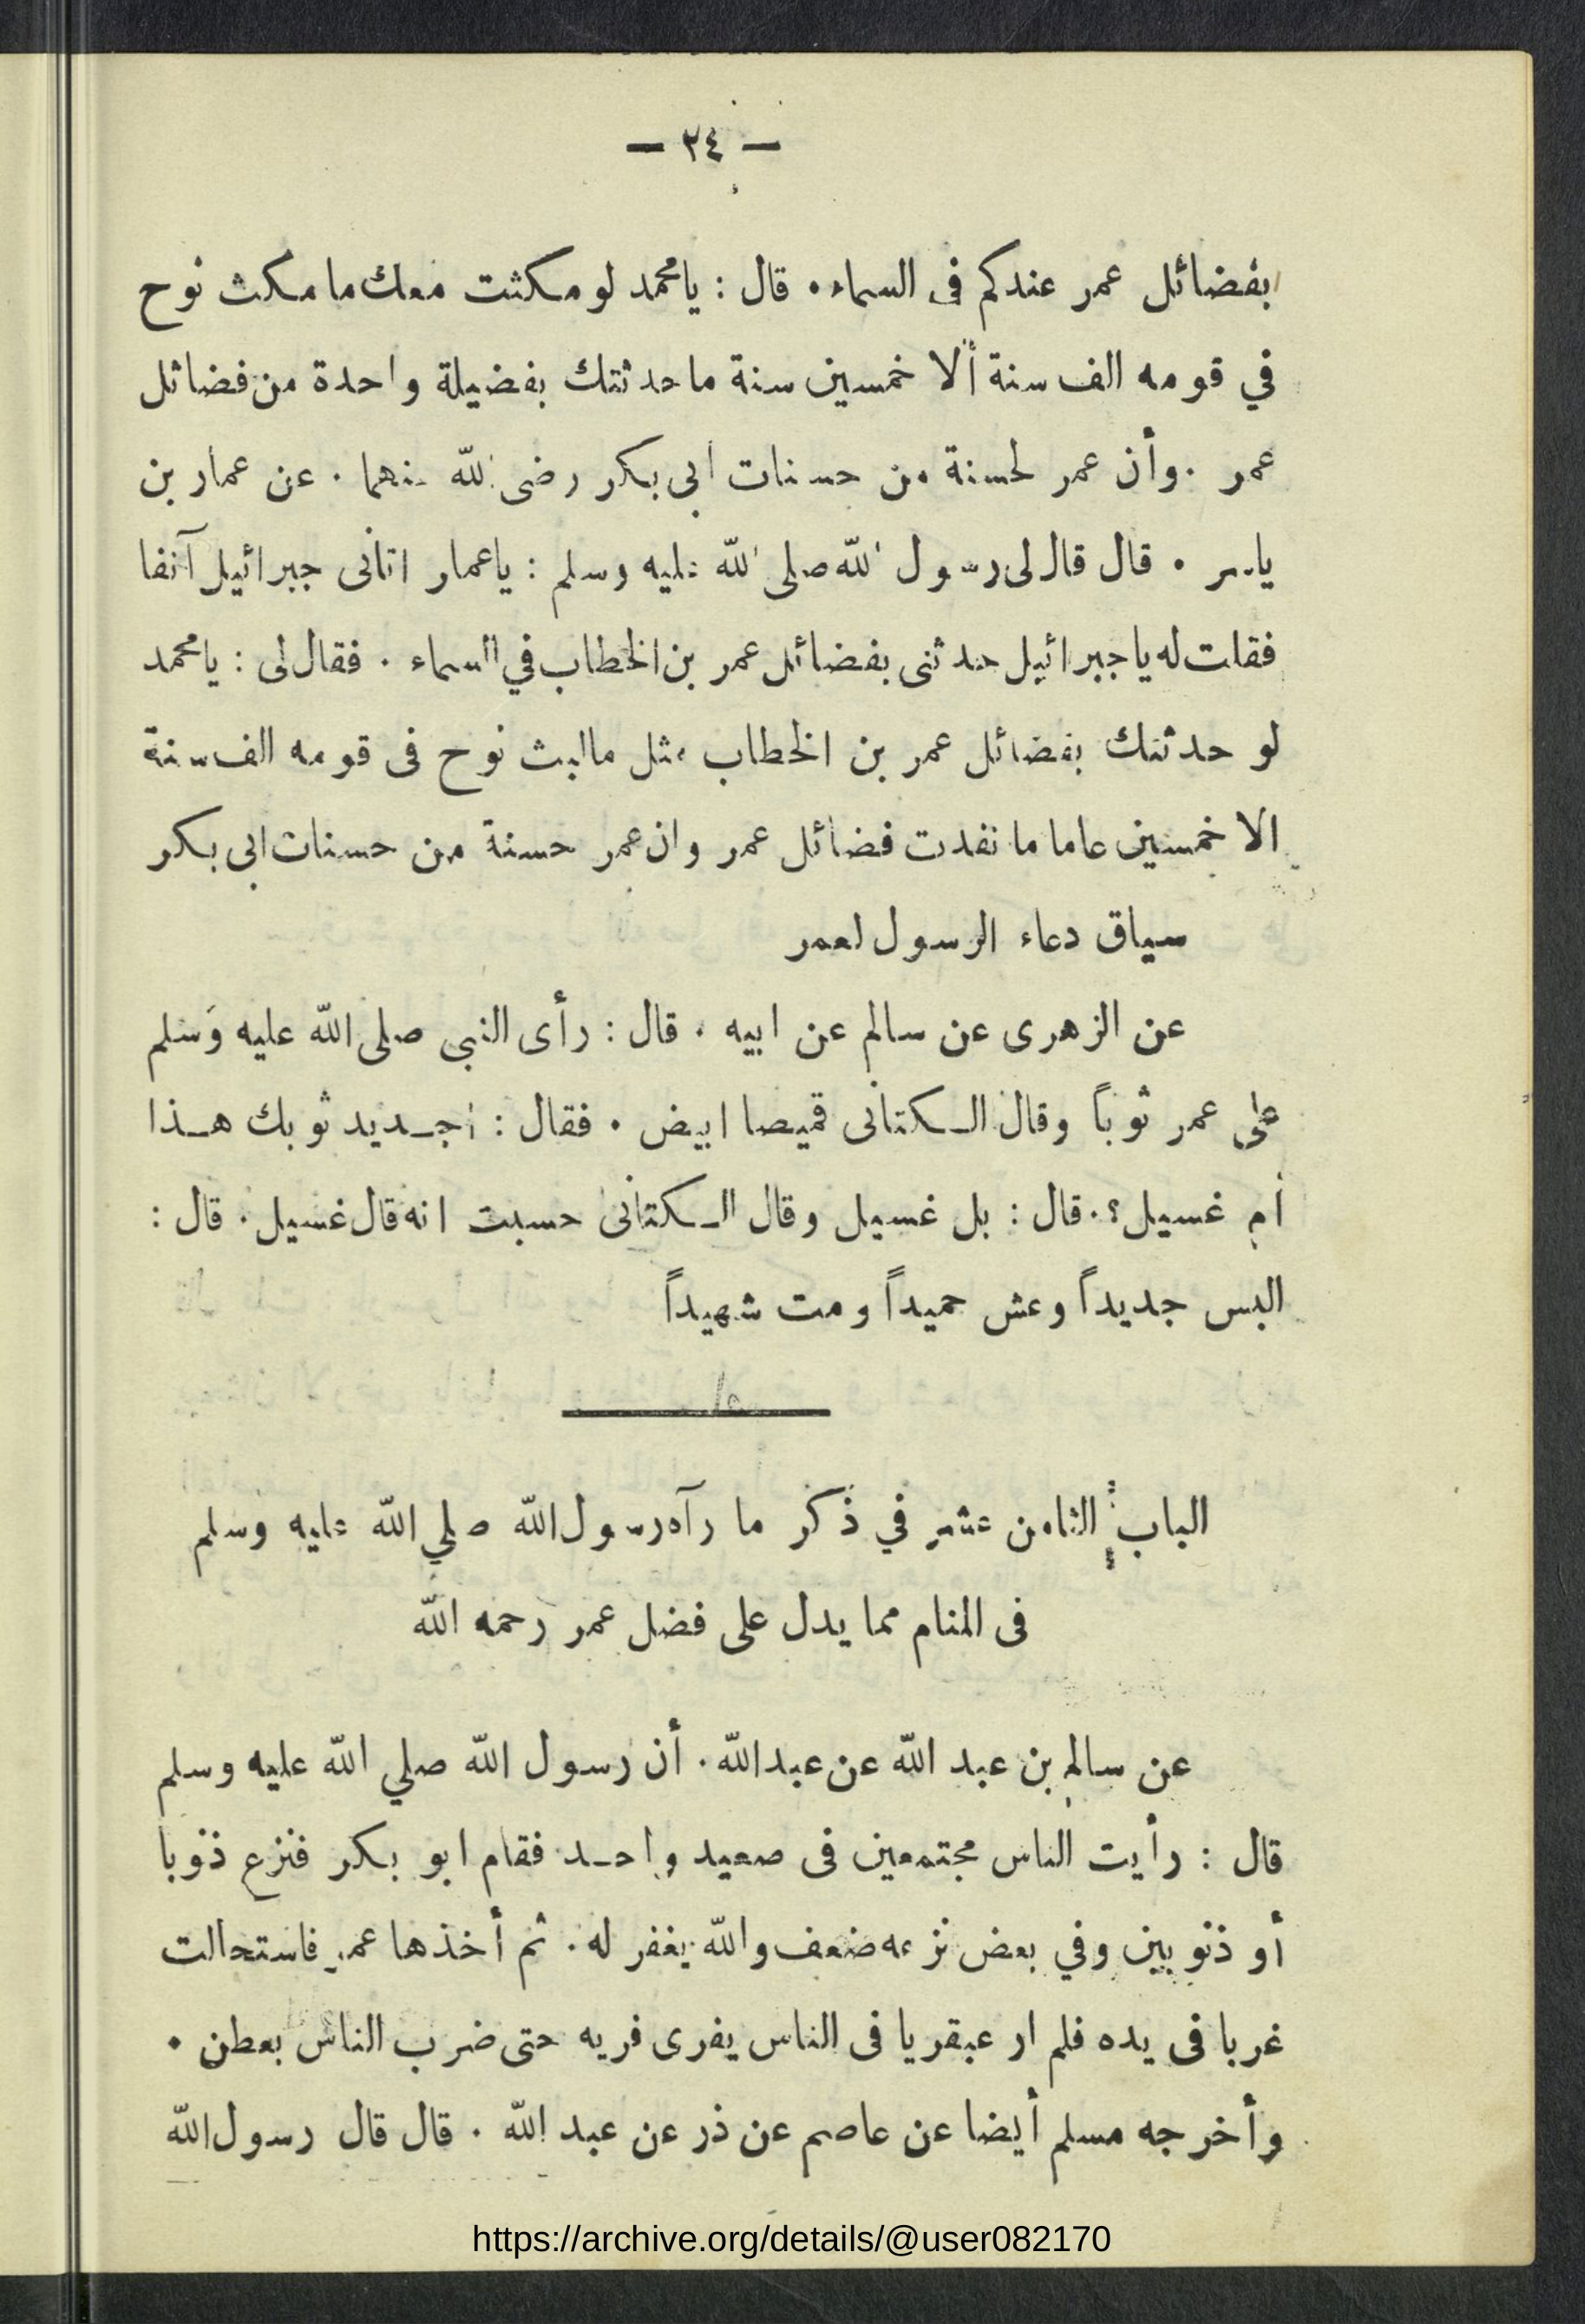 — ٣٤ —
بفضائل عمر عندكم فى السماء . قال : يامحمد لو مكثت معك ما مكث نوح
في قومه الف سنة ألا خمسين سنة ماحدثتك بفضيلة واحدة من فضائل
عمر . وأن عمر لحسنة من حسنات ابى بكر رضى الله عنهما . عن عمار بن
ياسر . قال قال لى رسول الله صلى الله عليه وسلم : ياعمار اتانى جبرائيل آنفا
فقلت له ياجبرائيل حدثنى بفضائل عمر بن الخطاب في السماء . فقال لى : يامحمد
لو حدثتك بفضائل عمر بن الخطاب مثل مالبث نوح فى قومه الف سنة
الا خمسين عاما ما نفدت فضائل عمر وان عمر حسنة من حسنات ابى بكر
سياق دعاء الرسول لعمر
عن الزهرى عن سالم عن ابيه . قال : رأى النبى صلى الله عليه وسلم
على عمر ثوباً وقال الكتانى قميصا ابيض . فقال : اجديد ثوبك هذا
أم غسيل؟. قال : بل غسيل وقال الكتانى حسبت انه قال غسيل . قال :
البس جديداً وعش حميداً ومت شهيداً
الباب الثامن عشر في ذكر ما رآه رسول الله صلي الله عليه وسلم
فى المنام مما يدل على فضل عمر رحمه الله
عن سالم بن عبد الله عن عبدالله . أن رسول الله صلي الله عليه وسلم
قال : رأيت الناس مجتمعين فى صعيد واحد فقام ابو بكر فنزع ذنوبا
أو ذنوبين وفي بعض نزعه ضعف والله يغفر له . ثم أخذها عمر فاستحالت
غربا فى يده فلم ار عبقريا فى الناس يفرى فريه حتى ضرب الناس بعطن .
وأخرجه مسلم أيضا عن عاصم عن ذر عن عبد الله . قال قال رسول الله
https://archive.org/details/@user082170